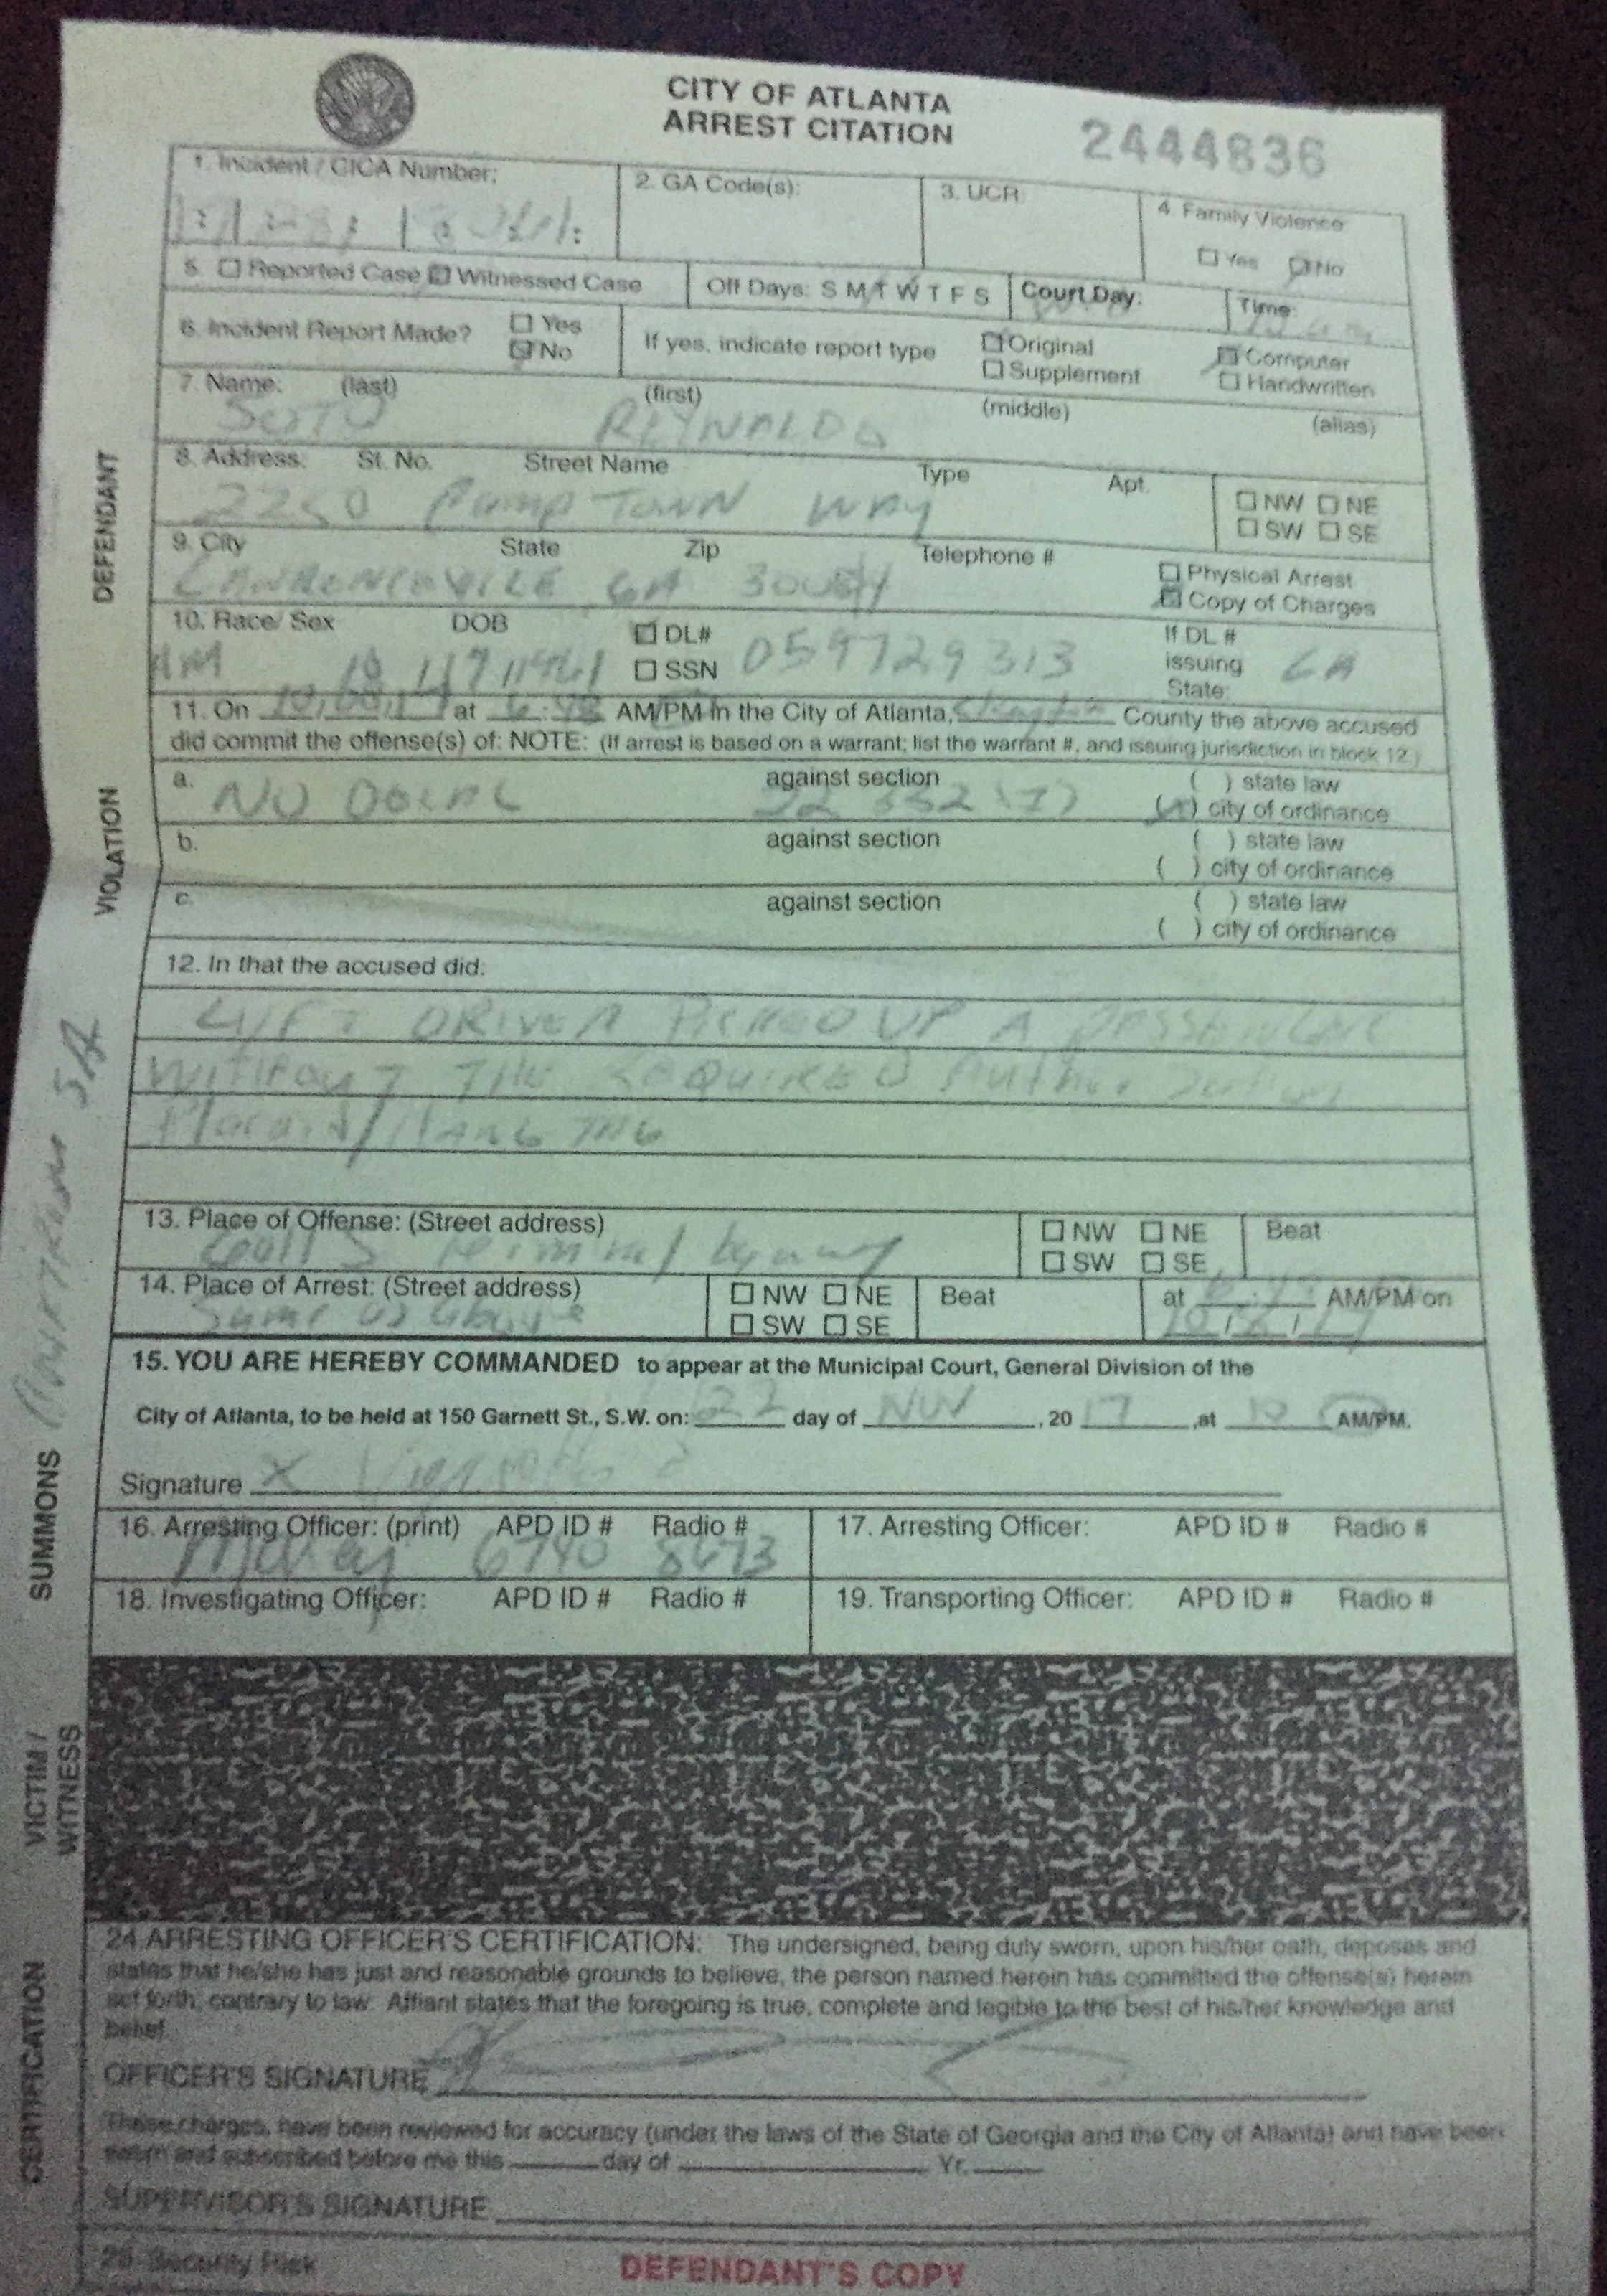 CITY OF ATLANTA
ARREST CITATION
2444836
1. Incident / CICA Number:
2. GA Code(s):
3. UCR
4. Family Violence
Yes No
5. Reported Case Witnessed Case
Off Days: S M T W T F S
Court Day:
Time:
6. Incident Report Made? Yes
No
If yes, indicate report type
Original
Supplement
Computer
Handwritten
7. Name: (last) (first) (middle) (alias)
SOTO REYNALDO
8. Address: St. No. Street Name Type Apt.
2250 TOWN WAY
NW NE
SW SE
9. City State Zip Telephone #
GA
Physical Arrest
Copy of Charges
10. Race/ Sex DOB
DL#
SSN
059729313
If DL #
issuing
State:
GA
11. On at AM/PM in the City of Atlanta, County the above accused
did commit the offense(s) of: NOTE: (If arrest is based on a warrant; list the warrant #, and issuing jurisdiction in block 12.)
a. NO against section ( ) state law
( ) city of ordinance
b. against section ( ) state law
( ) city of ordinance
c. against section ( ) state law
( ) city of ordinance
12. In that the accused did:
LYFT DRIVER PICKED UP A PASSENGER
WITHOUT THE REQUIRED
Placard / HANG TAG
13. Place of Offense: (Street address)
NW NE
SW SE
Beat
14. Place of Arrest: (Street address)
Same as above
NW NE
SW SE
Beat
at AM/PM on
15. YOU ARE HEREBY COMMANDED to appear at the Municipal Court, General Division of the
City of Atlanta, to be held at 150 Garnett St., S.W. on: 22 day of NOV , 20 17 ,at 10 AM/PM.
Signature X
16. Arresting Officer: (print) APD ID # Radio #
6740 8473
17. Arresting Officer: APD ID # Radio #
18. Investigating Officer: APD ID # Radio #
19. Transporting Officer: APD ID # Radio #
24. ARRESTING OFFICER'S CERTIFICATION: The undersigned, being duly sworn, upon his/her oath, deposes and
states that he/she has just and reasonable grounds to believe, the person named herein has committed the offense(s) herein
set forth, contrary to law. Affiant states that the foregoing is true, complete and legible to the best of his/her knowledge and
belief.
OFFICER'S SIGNATURE
These charges, have been reviewed for accuracy (under the laws of the State of Georgia and the City of Atlanta) and have been
sworn and subscribed before me this day of Yr.
SUPERVISOR'S SIGNATURE
25. Security Risk
DEFENDANT'S COPY
DEFENDANT
VIOLATION
SUMMONS
VICTIM /
WITNESS
CERTIFICATION